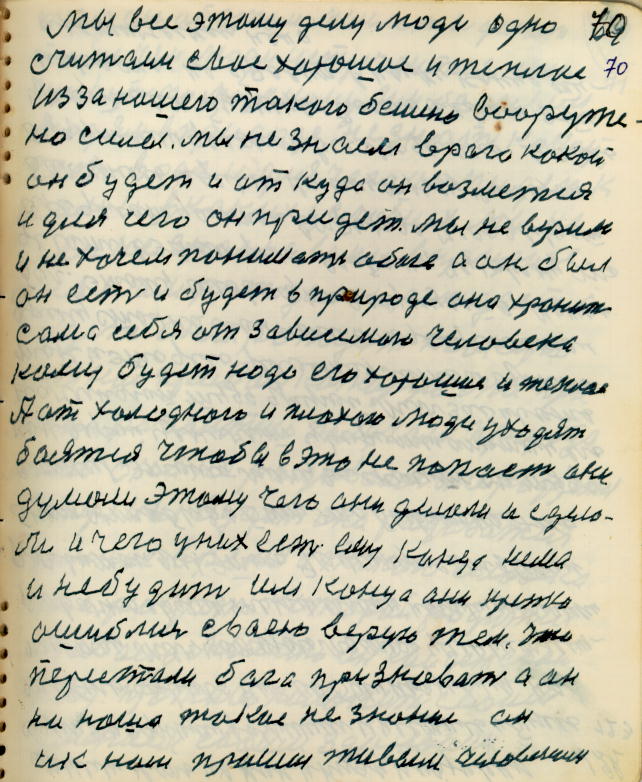 мы все этому делу люди одно 70
считаем свое хорошое и теплое 70
из за нашего такого бешено вооруже-
но силы. мы не знаем врага какой
он будет и от куда он возмется
и для чего он придет. мы не верим
и не хочем понимать обоге а он был
он есть и будет в природе она хранит
сама себя от зависемого человека
кому будет надо его хорошие и теплое
А от холодного и плохого люди уходят
боятся чтобы в это не попасть они
думали этому чего они делали и сдело-
ли и чего у них есть ему конца нема
и небудит им конца они крепко
ошиблися своею верую тем. Что
перестали бога признавать а он
на наше такое не знание он
и к нам пришол живым человеком